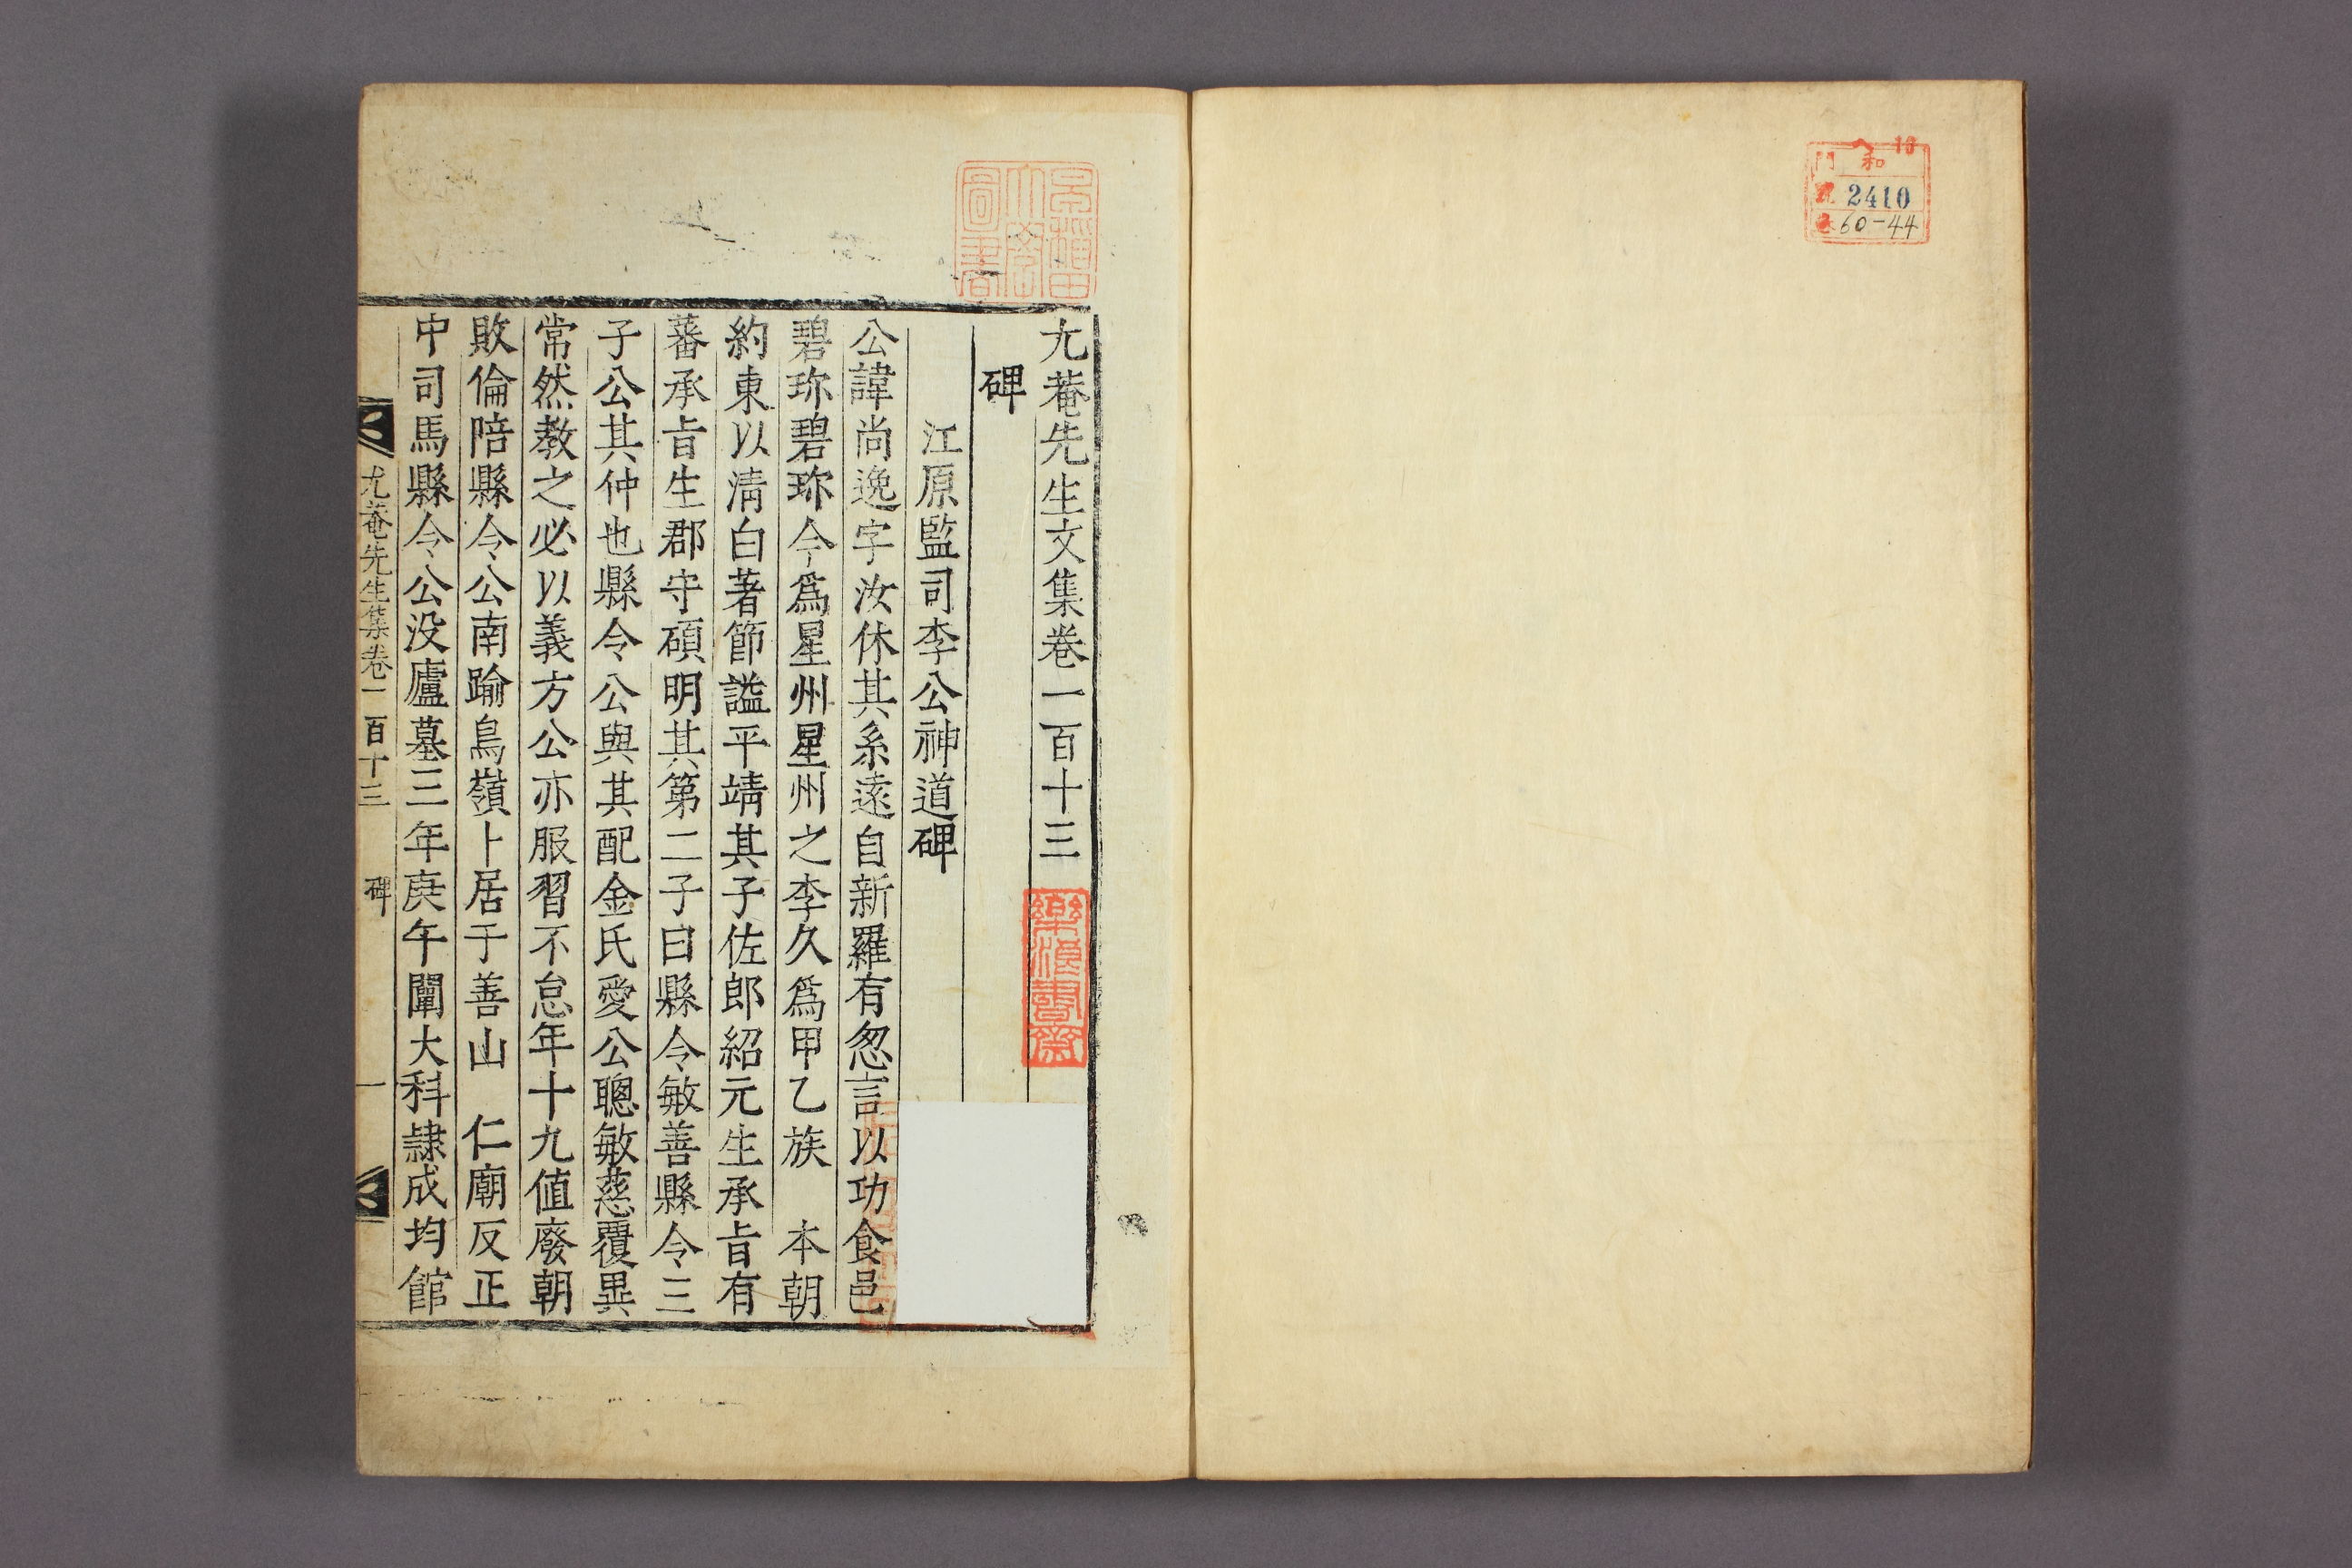 ヘ 16
門 和
號 2410
卷 60-44
早稲田大學圖書
尤菴先生文集卷一百十三
碑
江原監司李公神道碑
公諱尚逸字汝休其系遠自新羅有怱言以功食邑
碧珎碧珎今爲星州星州之李久爲甲乙族 本朝
約東以淸白著節謚平靖其子佐郎紹元生承旨有
蕃承旨生郡守碩明其第二子曰縣令敏善縣令三
子公其仲也縣令公與其配金氏愛公聰敏慈覆異
常然教之必以義方公亦服習不怠年十九値廢朝
敗倫陪縣令公南踰鳥嶺卜居于善山 仁廟反正
中司馬縣令公没廬墓三年庚午闡大科隷成均館
尤菴先生集卷一百十三 碑 一